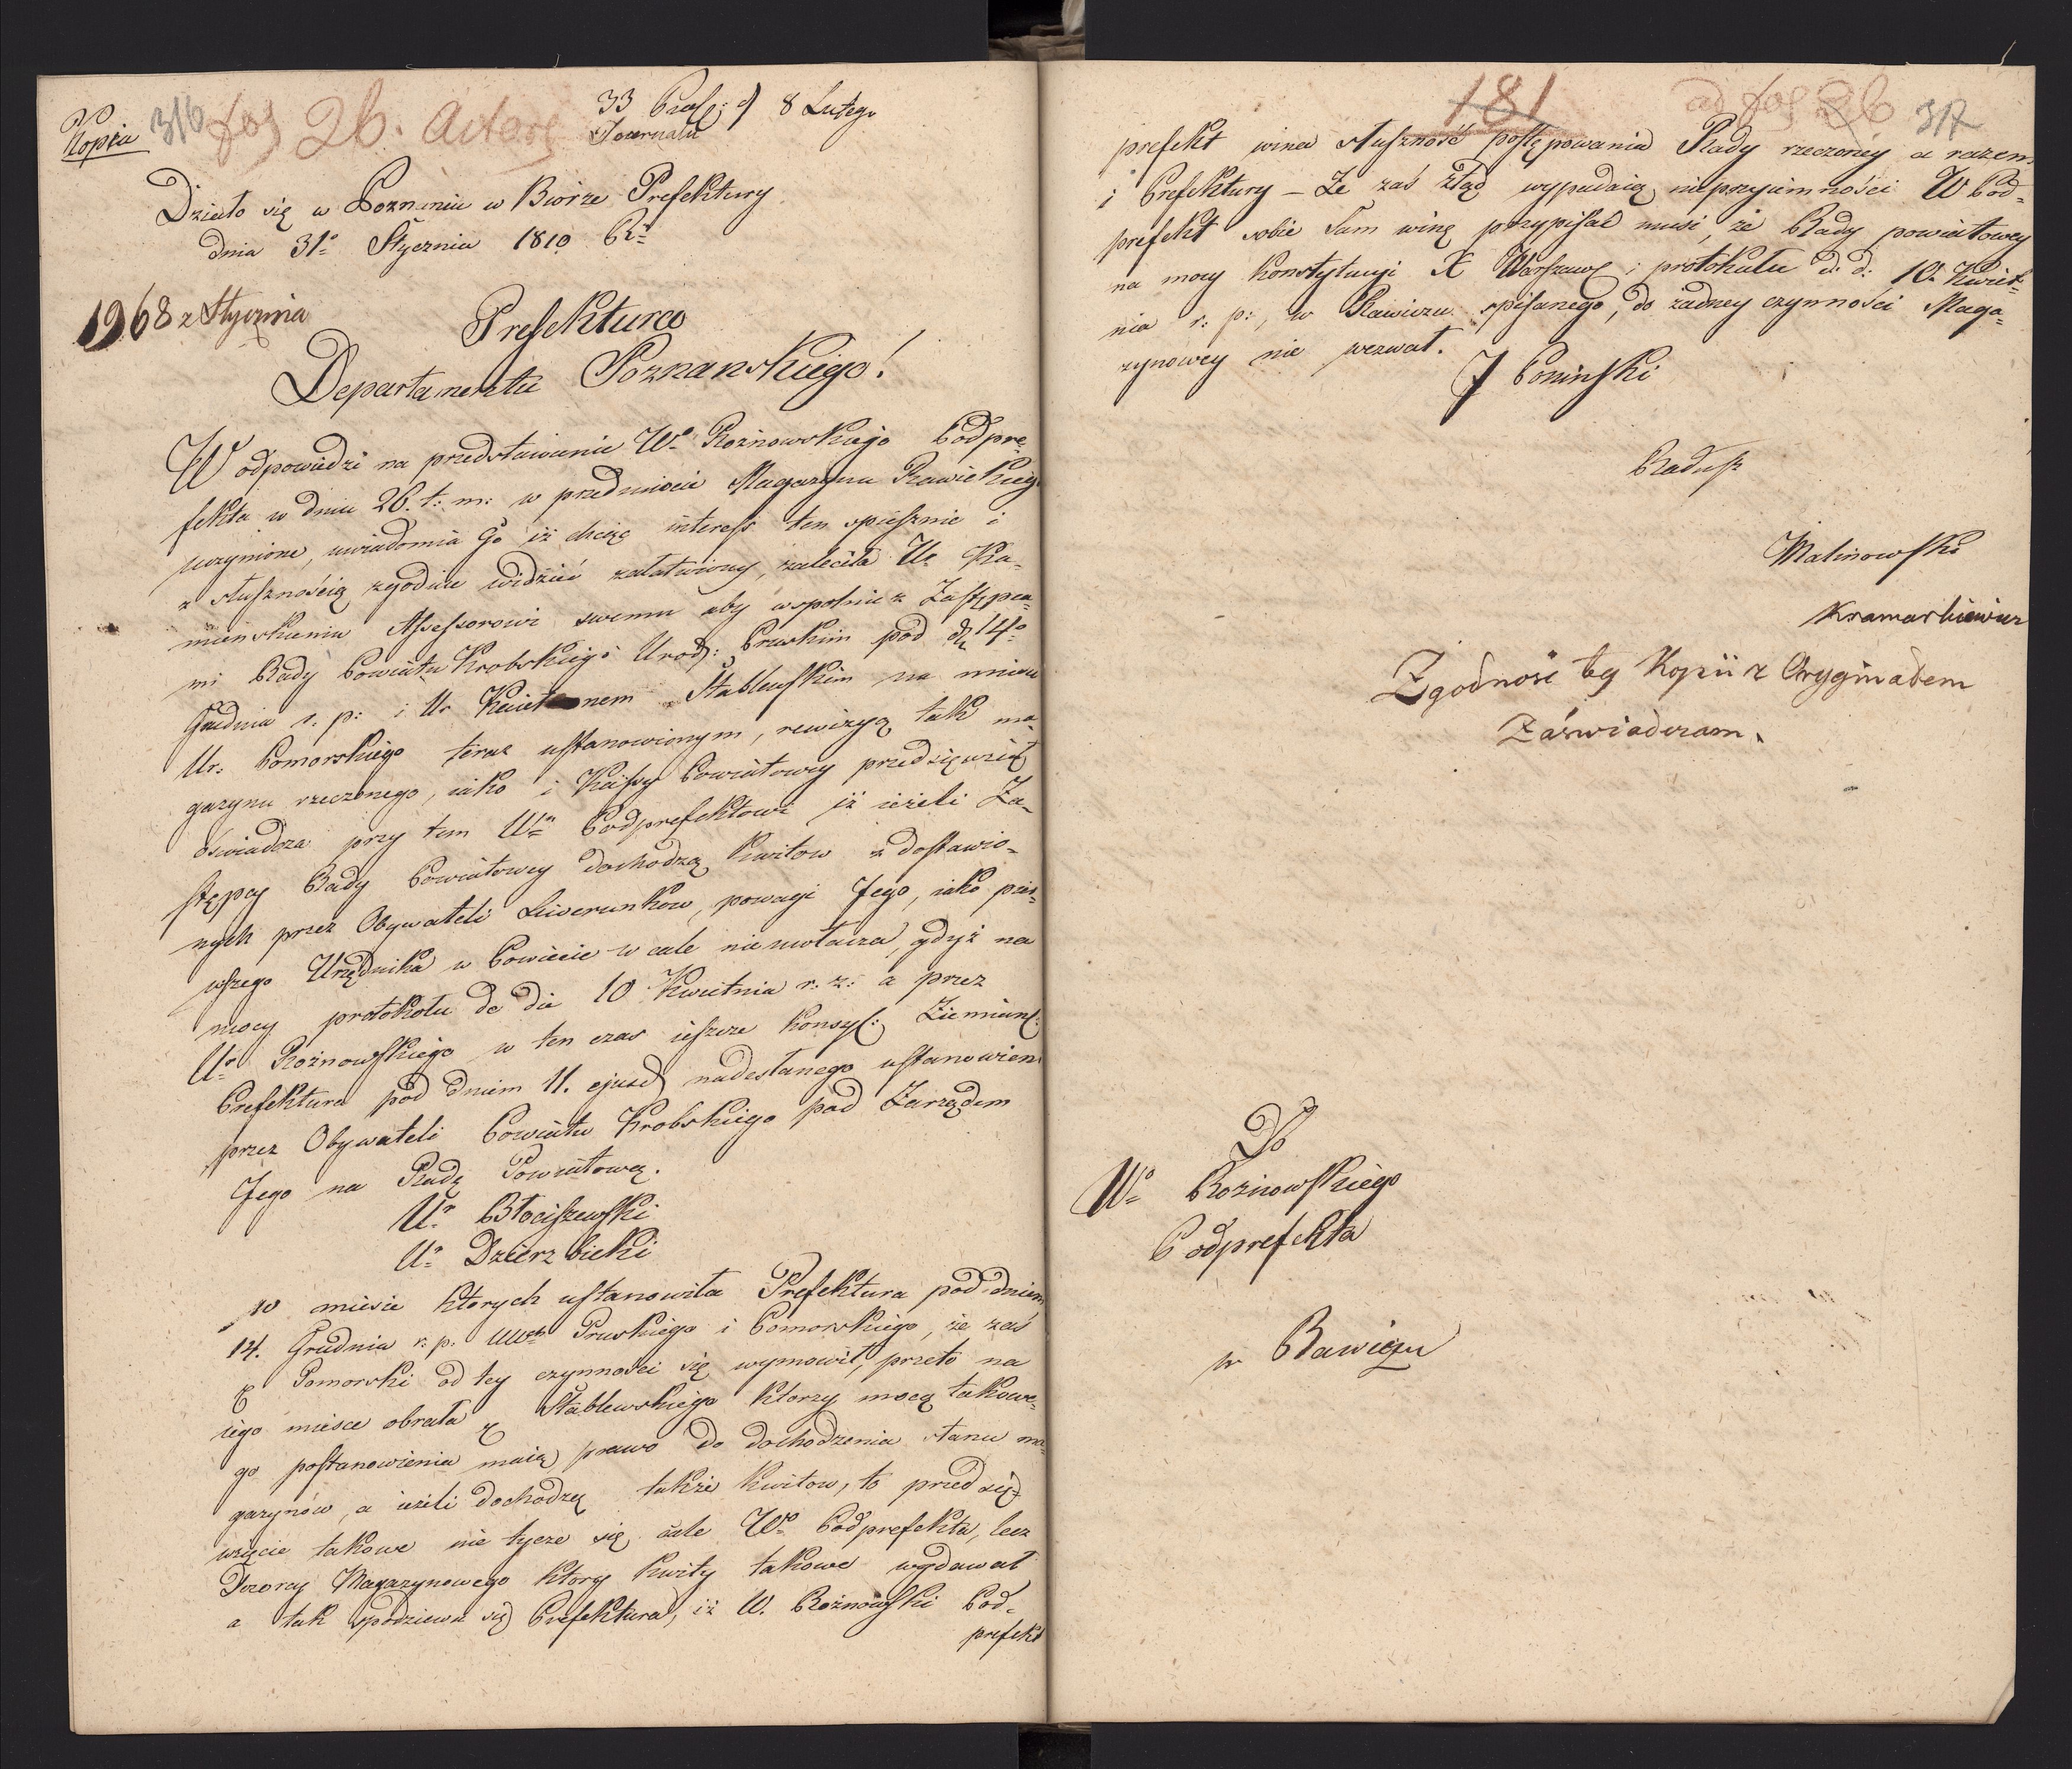 Kopia
316
fol 26. Actore
33 Praes: d 8 Lutego
Journalu
Działo się w Poznaniu w Biorze Prefektury
dnia 31º Stycznia 1810 Rº
1968 z Stycznia
Prefektura
Departamentu Poznanskiego!
W odpowiedzi na przedstawienie Wº Rożnowskiego Podpre
fekta w dniu 26. t: m: w przedmiocie Magazynu Rawickieg
uczynione, uwiadomia Go iż chcąc interess ten spiesznie i
z słusznością zgodnie widzieć załatwiony, zaleciła Ur Ka-
mienskiemu Assessorowi swemu aby wspolnie z Zastępca-
mi Rady Powiatu Krobskiego Urod: Pruskim pod d. 14º
Grudnia r. p: i Ur Kwiet nem Stablewskim na mieisc
Ur: Pomorskiego teraz ustanowionym, rewizyą tak ma-
gazynu rzeczonego, iako i Kassy Powiatowey przedsięwziął
oswiadcza przy tem Wm Podprefektowi iż ieżeli Za-
stępcy Rady Powiatowey dochodzą kwitow z dostawio-
nych przez Obywateli Liwerunkow, powagi Jego, iako pier-
wszego Urzędnika w Powiecie w cale nie uwłacza, gdyż na
mocy protokołu de die 10 Kwietnia r: z: a przez
Uº Rożnowskiego w ten czas ieszcze Konsyl: Ziemians:
Prefektura pod dniem 11. ejusd nadesłanego ustanowieni
przez Obywateli Powiatu Krobskiego pod Zarządem
Jego na Radę Powiatową.
Ur Błociszewski
Ur Dzierzbicki
w mieisce ktorych ustanowiła Prefektura pod dniem
14. Grudnia r: p. UUch Pruskiego i Pomorskiego, że zaś
P Pomorski od tey czynności się wymowił, przeto na
iego mieisce obrała P Stablewskiego ktorzy mocą takowe-
go postanowienia maią prawo do dochodzenia stanu ma-
gazynów, a ieżeli dochodzą także kwitow, to przedsię-
wzięcie takowe nie tycze się cale Wº Podprefekta, lecz
Dozorcy Magazynowego ktory kwity takowe wydawał
a tak spodziewa się Prefektura, iż W. Rożnowski Pod-
prefekt
181
ad fol 26
317
prefekt wina słuszność postępowania Rady rzeczoney a razem
i Prefektury – Ze zaś ztąd wypadaią nieprzyiemności W Pod-
prefekt sobie sam winę przypisać musi, że Rady powiatowey
na mocy konstytucyi X Warszaws i protokułu d. d: 10. Kwiet-
nia r: p:, w Rawiczu spisanego, do żadney czynności Maga-
zynowey nie wezwał.
J Poninski
Radusz
Malinowski
Kramarkiewicz
Zgodność tey Kopii z Oryginałem
Zaświadczam.
Do
Wº Rożnowskiego
Podprefekta
w Rawiczu